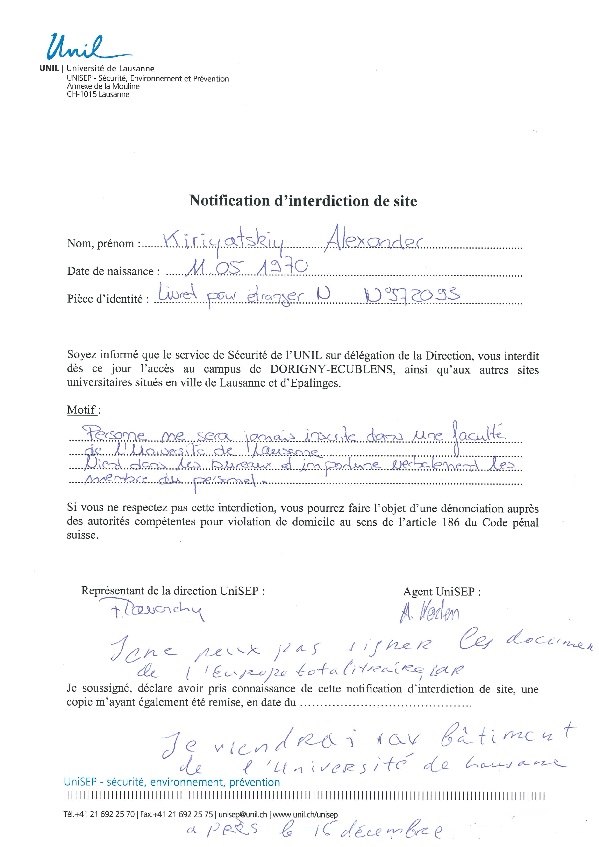 Unil
UNIL | Université de Lausanne
UNISEP - Sécurité, Environnement et Prévention
Annexe de la Mouline
CH-1015 Lausanne
Notification d'interdiction de site
Nom, prénom : Kiriyatskiy Alexander
Date de naissance : 11 05 1970
Pièce d'identité : Livret pour étranger N N°572093
Soyez informé que le service de Sécurité de l'UNIL sur délégation de la Direction, vous interdit
dès ce jour l'accès au campus de DORIGNY-ECUBLENS, ainsi qu'aux autres sites
universitaires situés en ville de Lausanne et d'Epalinges.
Motif :
Personne ne sera jamais inscrite dans une faculté
de l'Université de Lausanne
Vient dans les bureaux et importune verbalement les
membre du personnel.
Si vous ne respectez pas cette interdiction, vous pourrez faire l'objet d'une dénonciation auprès
des autorités compétentes pour violation de domicile au sens de l'article 186 du Code pénal
suisse.
Représentant de la direction UniSEP : Agent UniSEP :
Je ne peux pas signer les documen
de l'Europe totalitaire
Je soussigné, déclare avoir pris connaissance de cette notification d'interdiction de site, une
copie m'ayant également été remise, en date du
Je viendrai au bâtiment
de l'Université de Lausanne
UniSEP - sécurité, environnement, prévention
Tél.+41 21 692 25 70 | Fax.+41 21 692 25 75 | unisep@unil.ch | www.unil.ch/unisep
après le 16 décembre